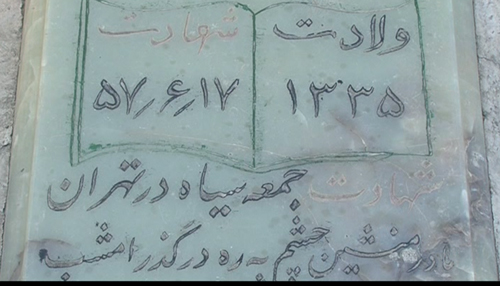 ولادت شهادت
۱۳۳۵ ۵۷٫۶٫۱۷
شهادت جمعه سیاه در تهران
مادر منشین چشم به ره در گذر امشب